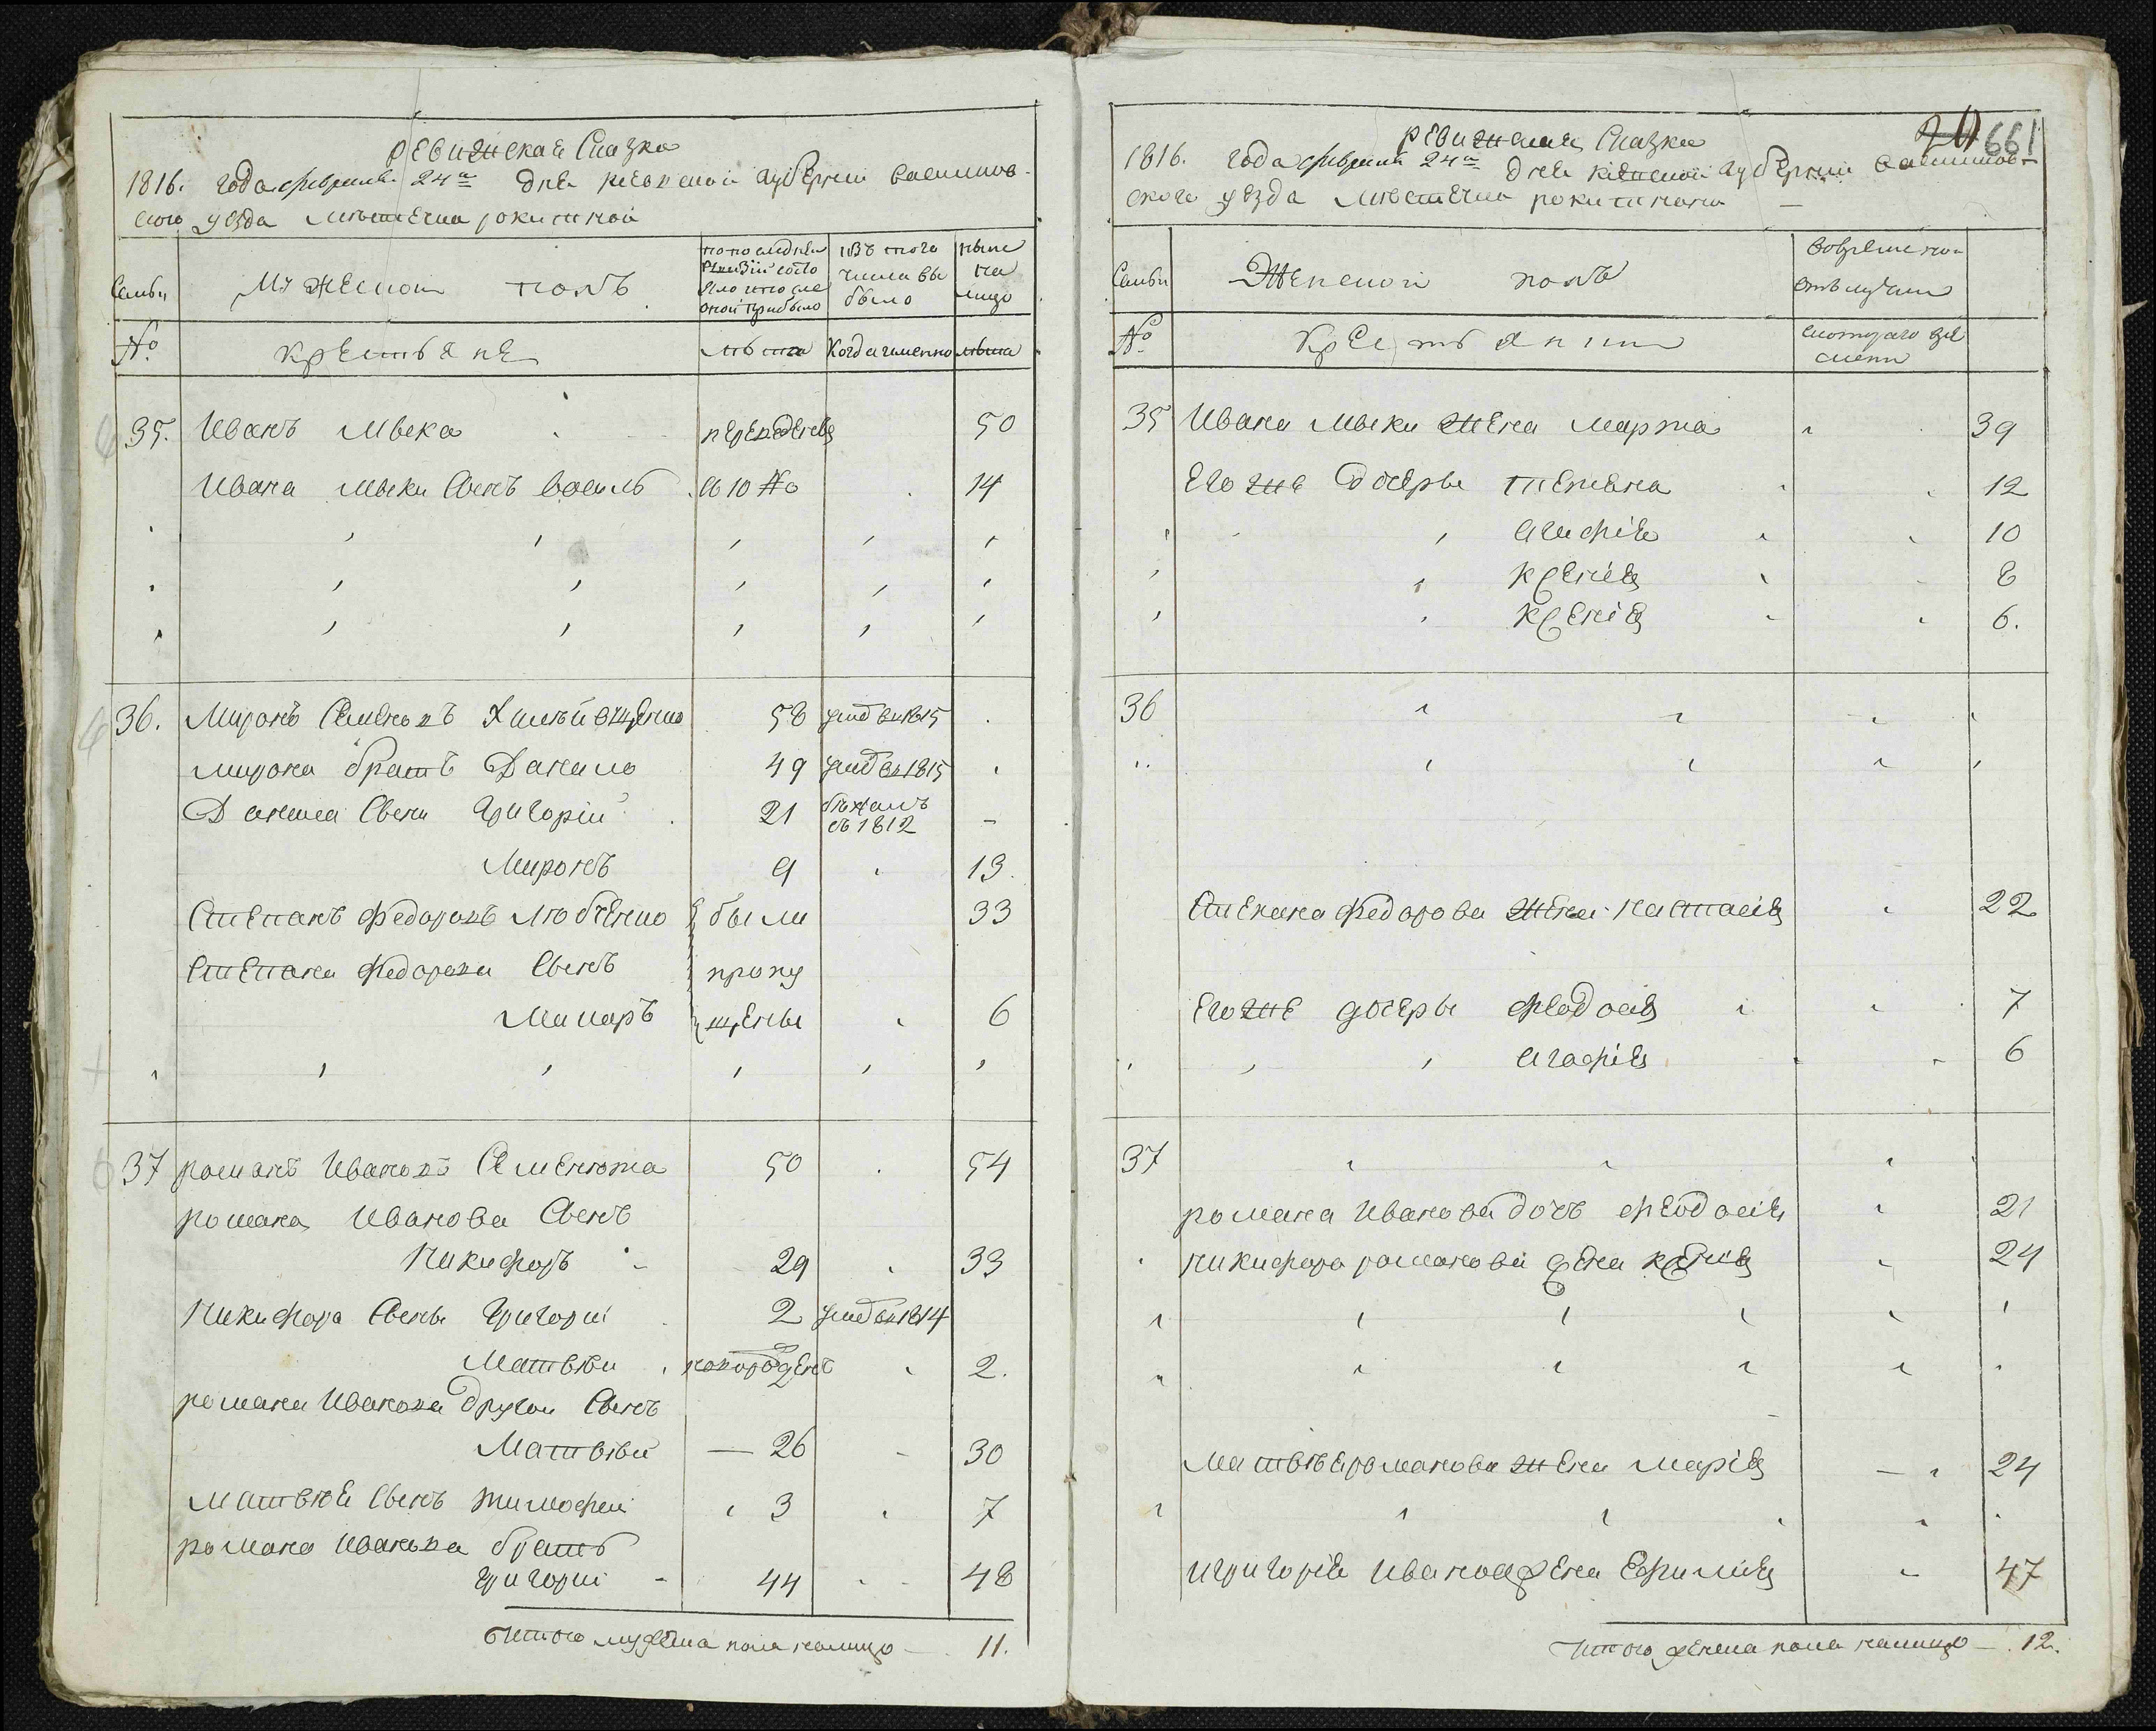 Ревизская Сказка
1816. года февраля 24го дня киевской губернии васильков-
ского уезда местечка рокитной
Семьи Мужеской полъ попоследней ревизіи состояло ипосле оной прибыло изъ того числа выбыло ныне на лицо
№ крестьяне лета Когда именно лета
35. Иванъ Мыка переведенъ 50
Ивана Мыки Сынъ василь съ 10 № 14
36. Миронъ Семеновъ 58 умъ въ 1815
мирона братъ Данило 49 умъ въ 1815
Данила Сыны Григорій 21 бежалъ въ 1812 -
Миронъ 9 13.
Степанъ федоровъ Любченко были 33
Степана федорова Сынъ пропу
Макаръ щены 6
37 романъ Ивановъ Семенюта 50 54
романа Иванова Сынъ
Никифоръ 29 33
Никифора Сыны Григорій 2 умъ въ 1814
Матвей новорожденъ 2.
романа Иванова другой Сынъ
Матвей — 26 - 30
Матвея Сынъ тимофей 3 7
романа Иванова братъ
Григорій - 44 48
Итого мужеска пола налицо — 11.
661
Ревизская Сказка
1816. года февраля 24го дня кіевской губерніи васильков-
ского уезда местечка рокитной —
Семьи Женской полъ вовременной отлучки
№ Крестьянки скоторого времени
35 Ивана Мыки жена марта 39
Его же дочеры тетяна 12
агафія 10
ксенія 8
ксенія 6.
36
Степана федорова жена настасія 22
Его же дочеры феодосія 7
агафія 6
37
романа Иванова дочь феодосія 21
никифора романова жена ксенія 24
матвея романова жена марія — 24
григорія Иванова жена Ефимія 47
Итого женска пола налицо — 12.